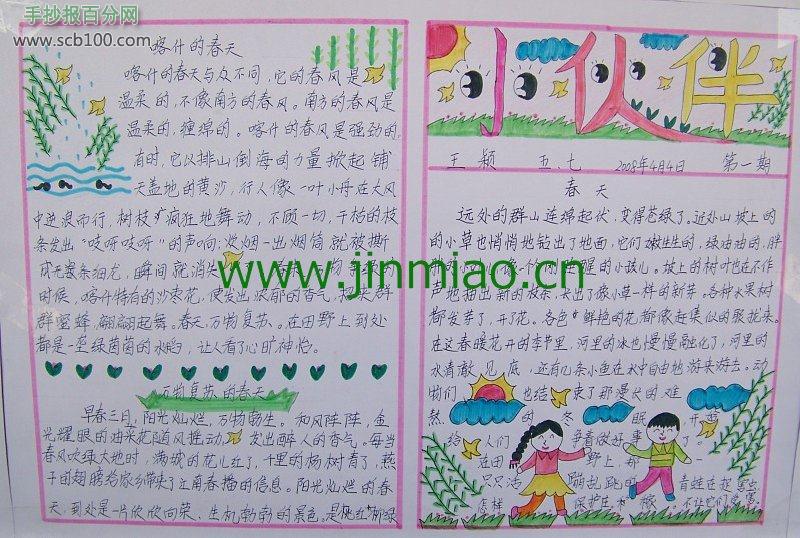 手抄报百分网
www.scb100.com
喀什的春天
喀什的春天与众不同,它的春风是
温柔的,不像南方的春风。南方的春风是
温柔的,缠绵的。喀什的春风是强劲的
有时,它以排山倒海的力量掀起铺
天盖地的黄沙,行人像一叶小舟在大风
中逆浪而行,树枝疯狂地舞动,不顾一切,干枯的枝
条发出“吱呀吱呀”的声响;炊烟一出烟筒就被撕
成无数条细花,瞬间就消
时候,喀什特有的沙枣花,便发出浓郁的香气,招来群
群蜜蜂,翩翩起舞。春天,万物复苏。在田野上到处
都是一垄绿茵茵的水稻,让人看了心旷神怡。
万物复苏的春天
早春三日,阳光灿烂,万物勃生。和风阵阵,金
光耀眼的油菜花随风推动,发出醉人的香气。每当
春风吹绿大地时,满城的花儿红了,千里的杨树青了,燕
子由翅膀为家乡带来了江南春播的信息。阳光灿烂的春
天,到处是一片欣欣向荣、生机勃勃的景色。是桃红柳绿
小伙伴
王颖 五、七 2008年4月4日 第一期
春天
远处的群山连绵起伏,变得苍绿了。近处山坡上的
的小草也悄悄地钻出了地面,它们嫩生生的,绿油油的,胖
像一个刚睡醒的小孩儿。坡上的树叶也在不作
声地抽出新的枝条,长出了像小草一样的新芽。各种水果树
都发芽了,开了花。各色鲜艳的花都像赶集似的聚拢来。
在这春暖花开的季节里,河里的冰也慢慢融化了,河里的
水清澈见底,还有几条小鱼在水中自由地游来游去。动
物们也结束了那漫长的难
熬的冬眠开始
给人们争着做好事了。
在田野上,那
只只活蹦乱跳的青蛙在赶害虫
怎样保护庄稼,不让它们受害
www.jinmiao.cn